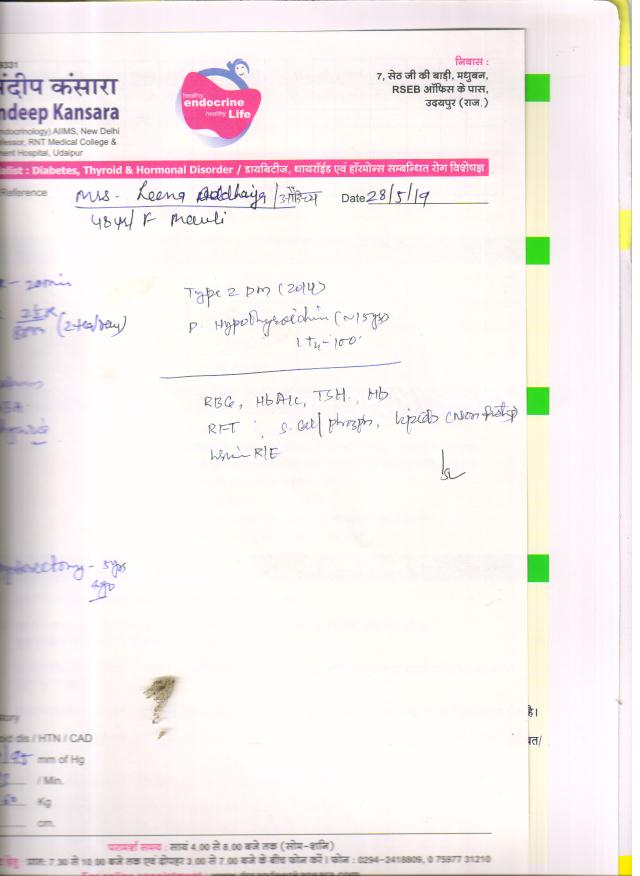 9331
संदीप कंसारा
ndeep Kansara
ndocrinology) AIIMS, New Delhi
fessor, RNT Medical College &
ment Hospital, Udaipur
healthy
endocrine
healthy Life
निवास :
7, सेठ जी की बाड़ी, मधुबन,
RSEB ऑफिस के पास,
उदयपुर (राज.)
alist : Diabetes, Thyroid & Hormonal Disorder / डायबिटीज, थायरॉईड एवं हॉरमोन्स सम्बन्धित रोग विशेषज्ञ
Reference Mrs. Leena Date 28/5/19
48yr/F
- 20min
Type 2 DM (2014)
(2 tea/day)
P. Hypothyroidism (~15yrs)
100
RBG, HbA1c, TSH, Hb
RFT, S. Cal/phosph, Lipids (Non fasting)
Urine R/E
- 5yrs
ago
ory
oid dis / HTN / CAD
/95 mm of Hg
/ Min.
60 Kg
cm.
है।
परामर्श समय : सायं 4.00 से 8.00 बजे तक (सोम-शनि)
हेतु : प्रातः 7.30 से 10.00 बजे तक एवं दोपहर 3.00 से 7.00 बजे के बीच फोन करें। फोन : 0294-2418809, 0 75977 31210